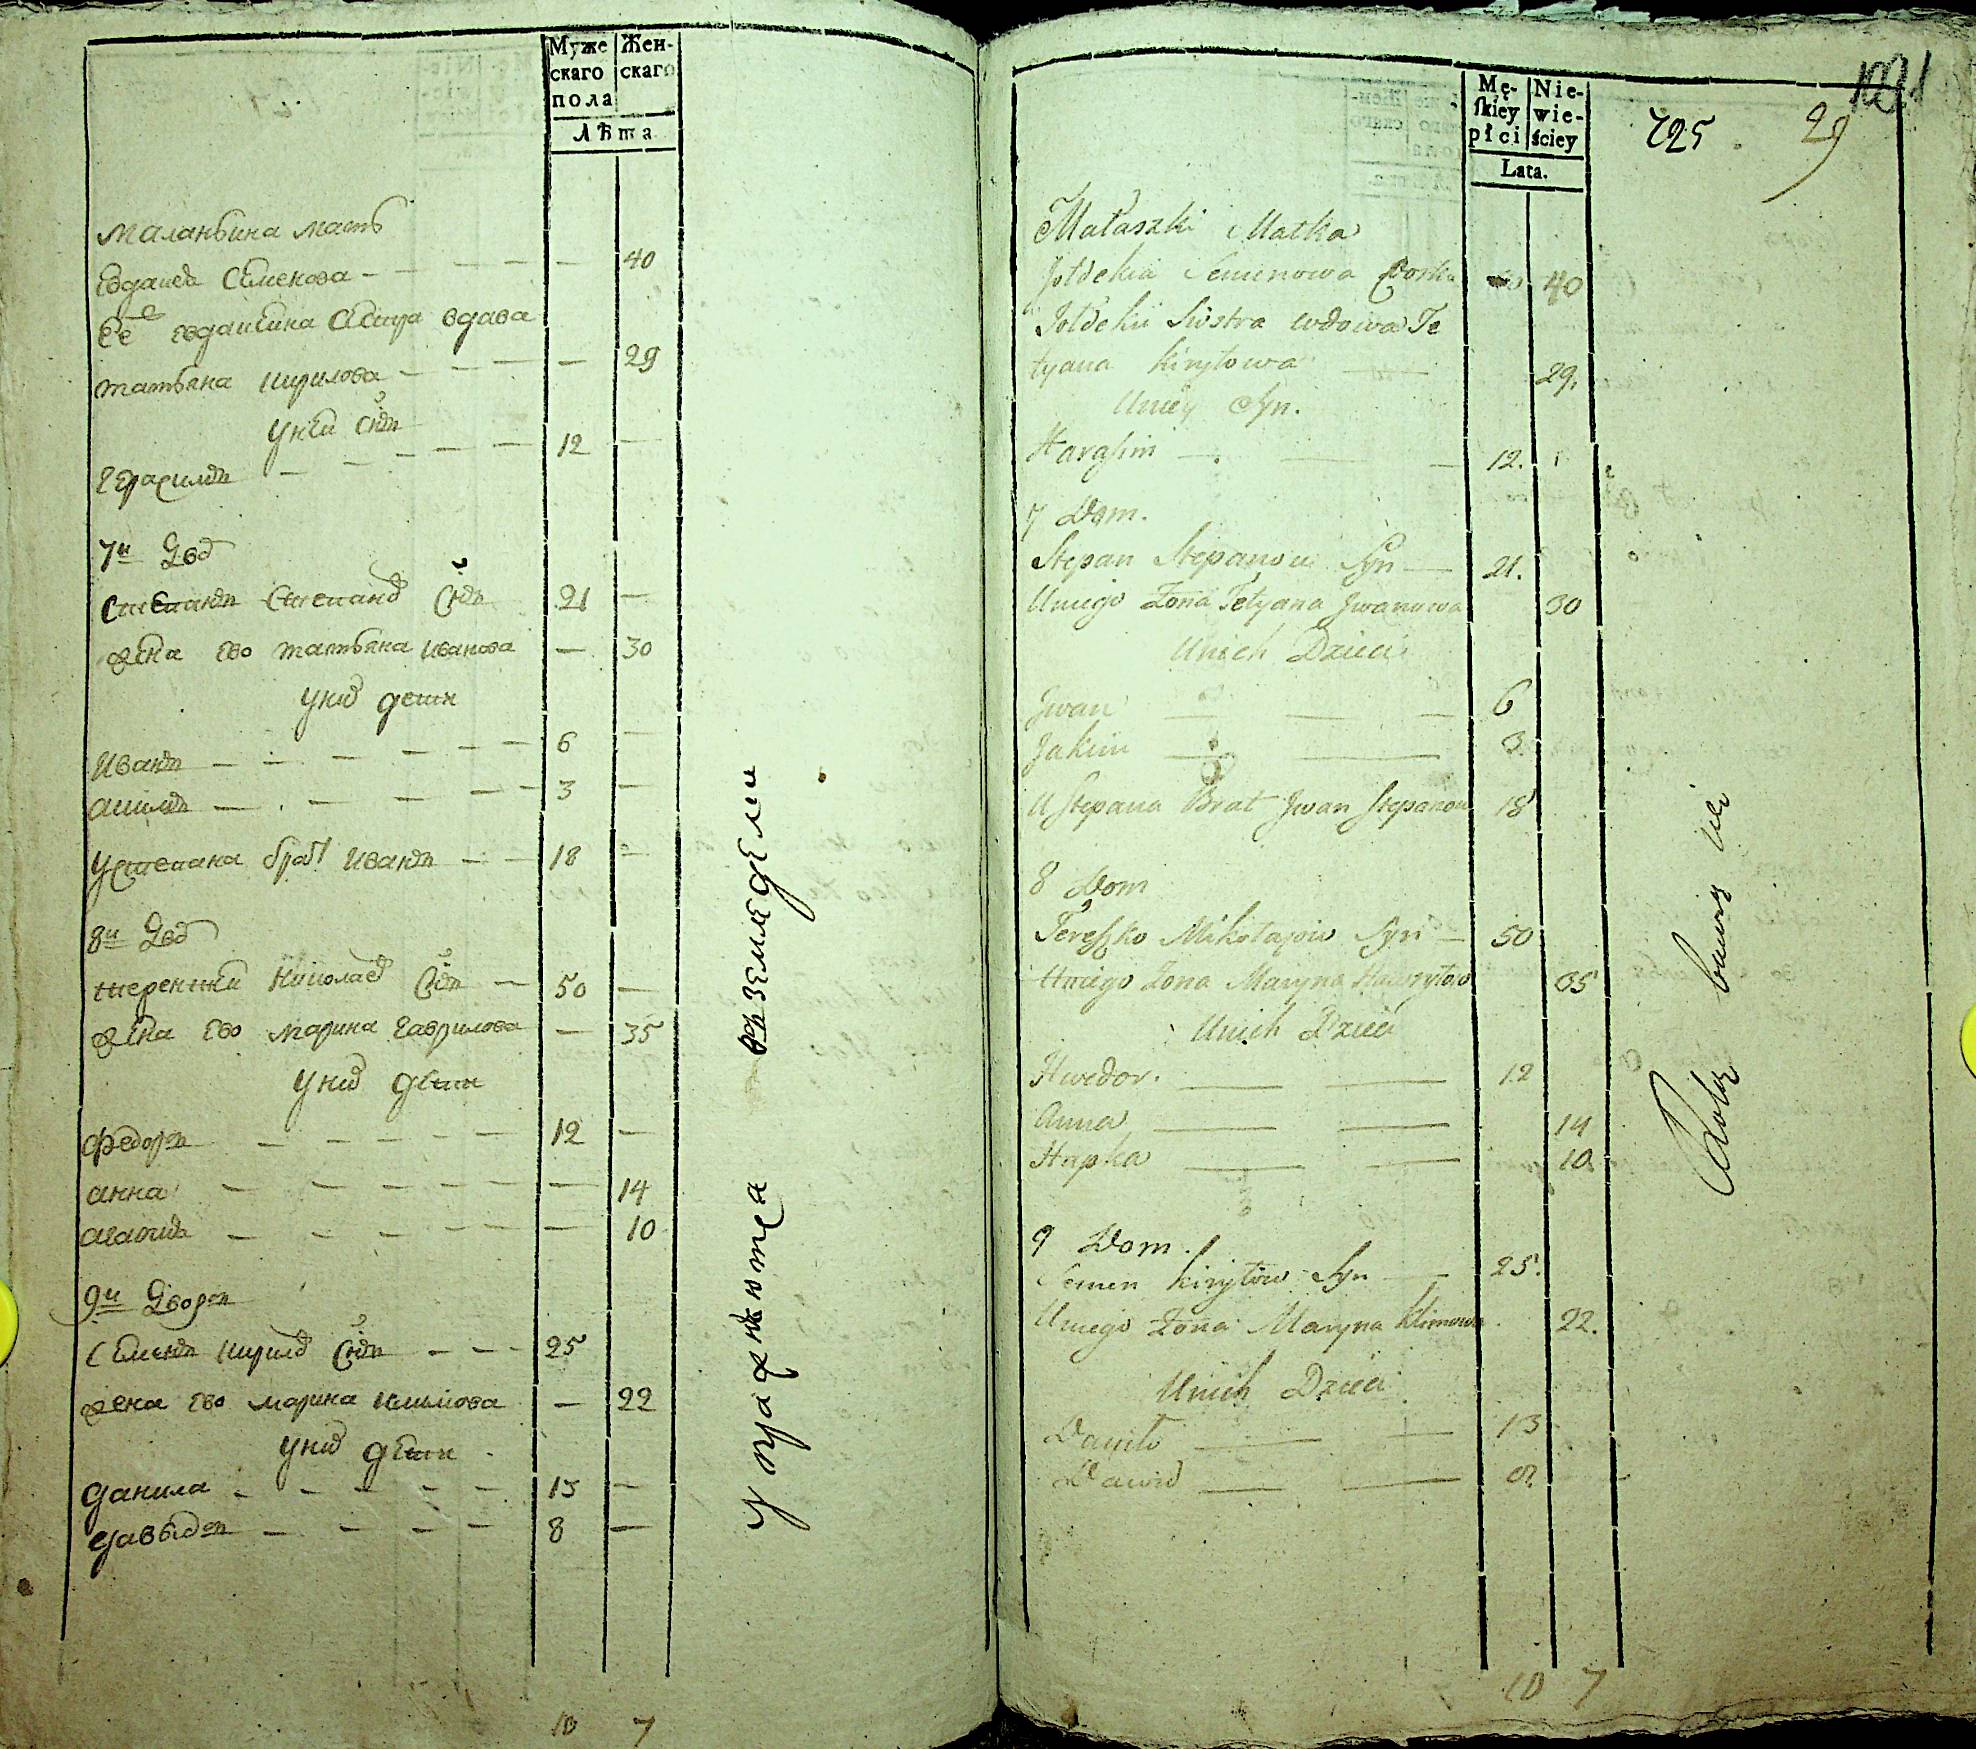 Муже Жен-
скаго скаго
пола
Лѣта
маланьина мать
Евдокея Семенова — 40
Ее евдокиина сестра вдова
татьяна кирилова — 29
у неи снъ
герасимъ — 12 —
7и двор
степанъ степанов снъ 21 —
жена ево татьяна иванова — 30
у них дети
иванъ — 6 —
акимъ — 3 —
у степана брат иванъ — 18 —
8и двор
терешка николаев снъ — 50 —
жена ево марина гаврилова — 35
у них дети
федоръ — 12 —
анна — 14
агапия — 10
9и дворъ
семенъ кирилов снъ — 25
жена ево марина климова — 22
у них дети
данила — 13 —
давыдъ — 8 —
10 7
упражняютца въ земледели
Mę- Nie-
skiey wie-
płci ściey
Lata.
725 29
Małaszki Matka
Jołdekia Semenowa Corka 40
Jołdekii Siostra wdowa Te
tyana Kiryłowa 29.
Uniey Syn.
Harasim — 12.
7 Dom.
Stepan Stepanow Syn — 21.
Uniego Zona Tetyana Jwanowa 30
Unich Dzieci
Jwan — 6
Jakim — 3
U Stepana Brat Jwan Stepanow 18
8 Dom
Tereszko Mikołajow Syn — 50
Uniego Zona Maryna Hawryłow 35
Unich Dzieci
Hwedor. — 12
Anna — 14
Hapka — 10.
9 Dom.
Semen Kiryłow Syn — 25.
Uniego Zona Maryna Klimowa. 22.
Unich Dzieci
Daniło — 13
Dawid — 8
10 7